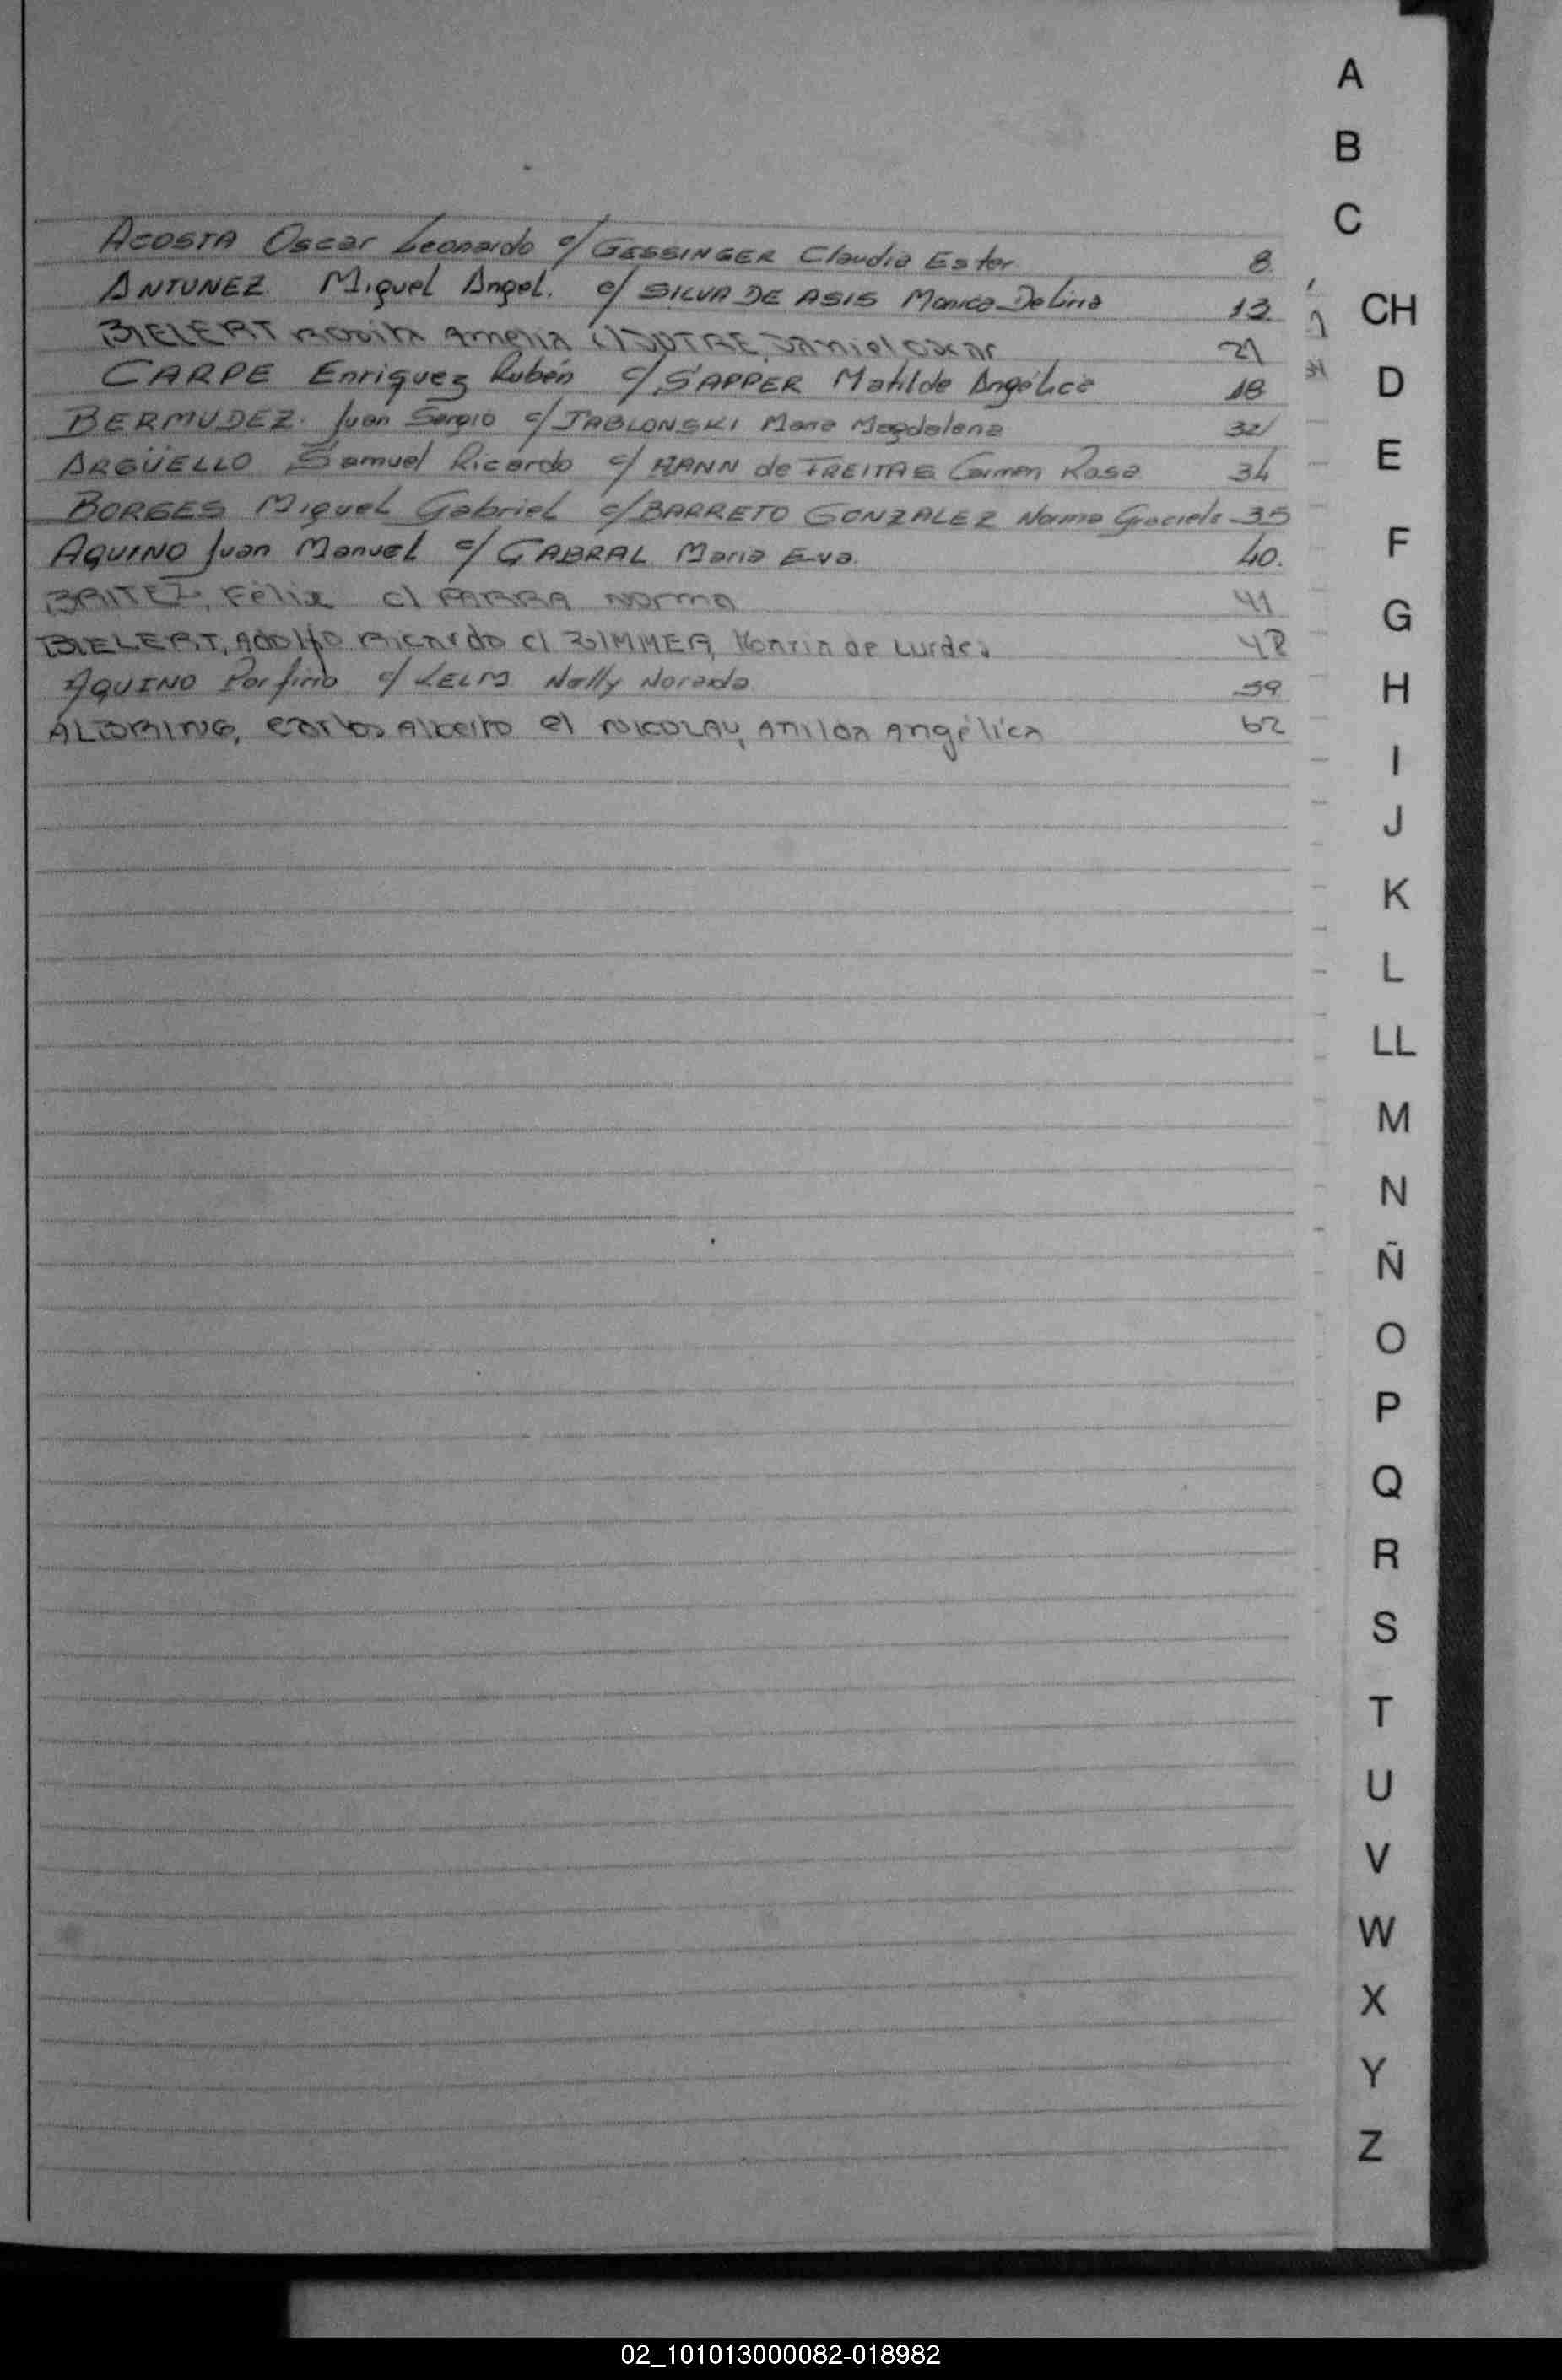 A
B
C
ACOSTA Oscar Leonardo c/ GESSINGER Claudia Ester 8
ANTUNEZ Miguel Angel. c/ SILVA DE ASIS Monica Delina 13
BIELERT Amelia Daniel Oscar 21
CARPE Enriquez Rubén c/ SAPPER Matilde Angélica 18
BERMUDEZ. Juan Sergio c/ JABLONSKI Maria Magdalena 32
ARGÜELLO Samuel Ricardo c/ HANN de FREITAS Carmen Rosa 34
BORGES Miguel Gabriel c/ BARRETO GONZALEZ Norma Graciela 35
AQUINO Juan Manuel c/ CABRAL Maria Eva. 40.
BRITEZ, Félix c/ PARRA Norma 41
BIELERT, Adolfo Ricardo c/ ZIMMER, de Lurdes 48
AQUINO Porfirio c/ Nelly 59
Carlos Alberto c/ NICOLAY, Angélica 62
CH
D
E
F
G
H
I
J
K
L
LL
M
N
Ñ
O
P
Q
R
S
T
U
V
W
X
Y
Z
02_101013000082-018982